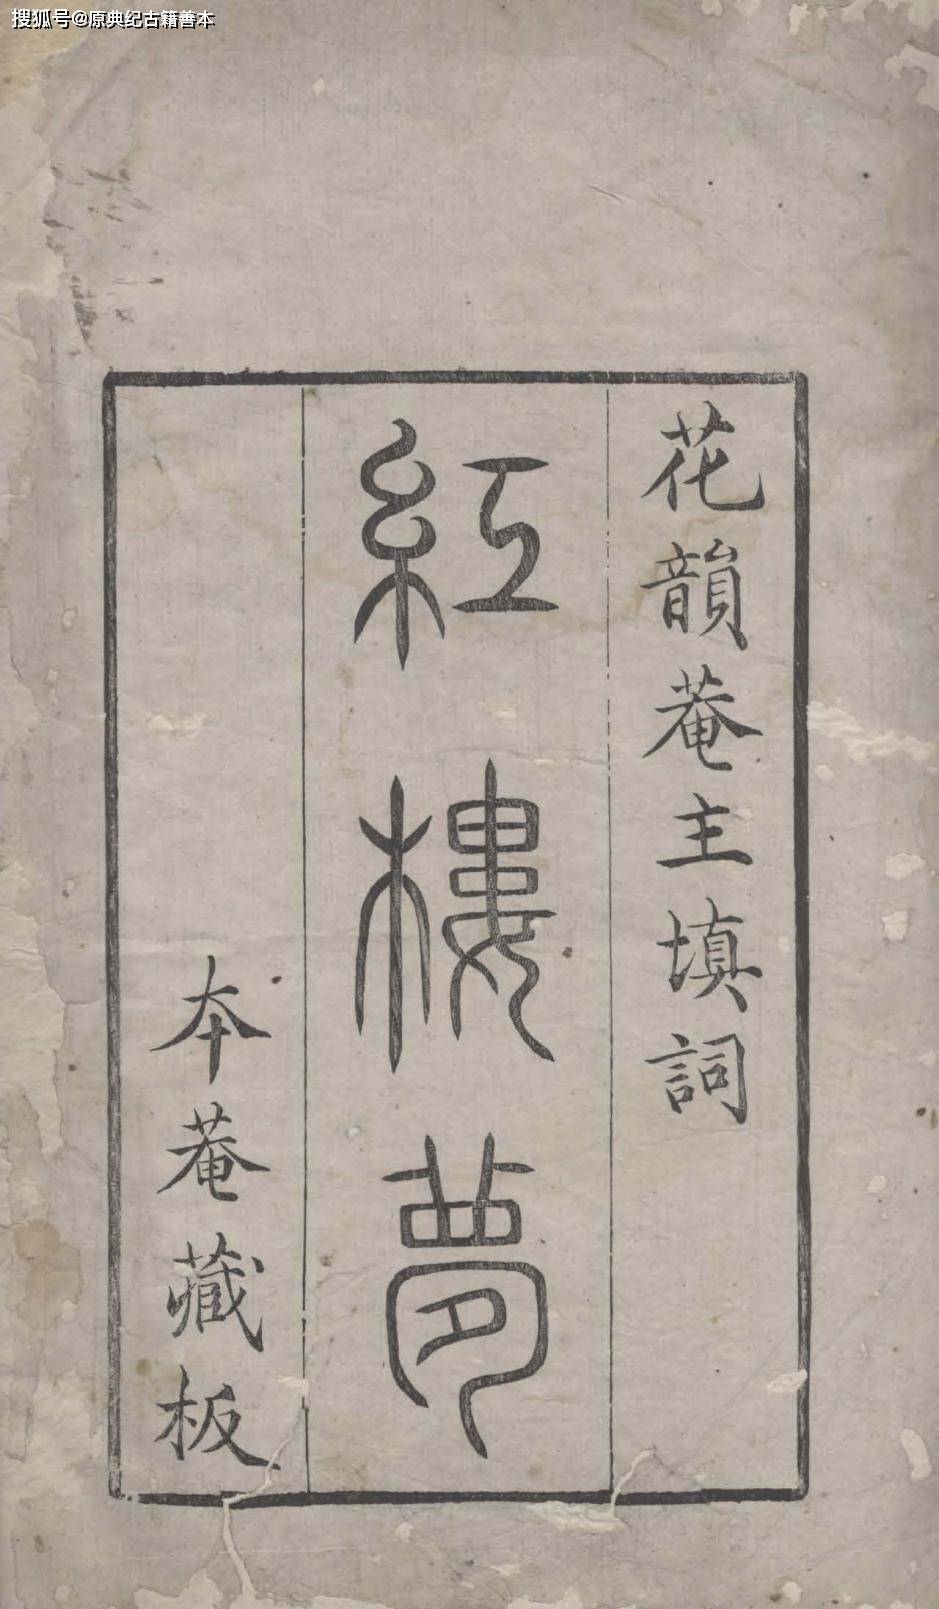 搜狐号@原典纪古籍善本
花韻菴主填詞
紅樓夢
本菴藏板